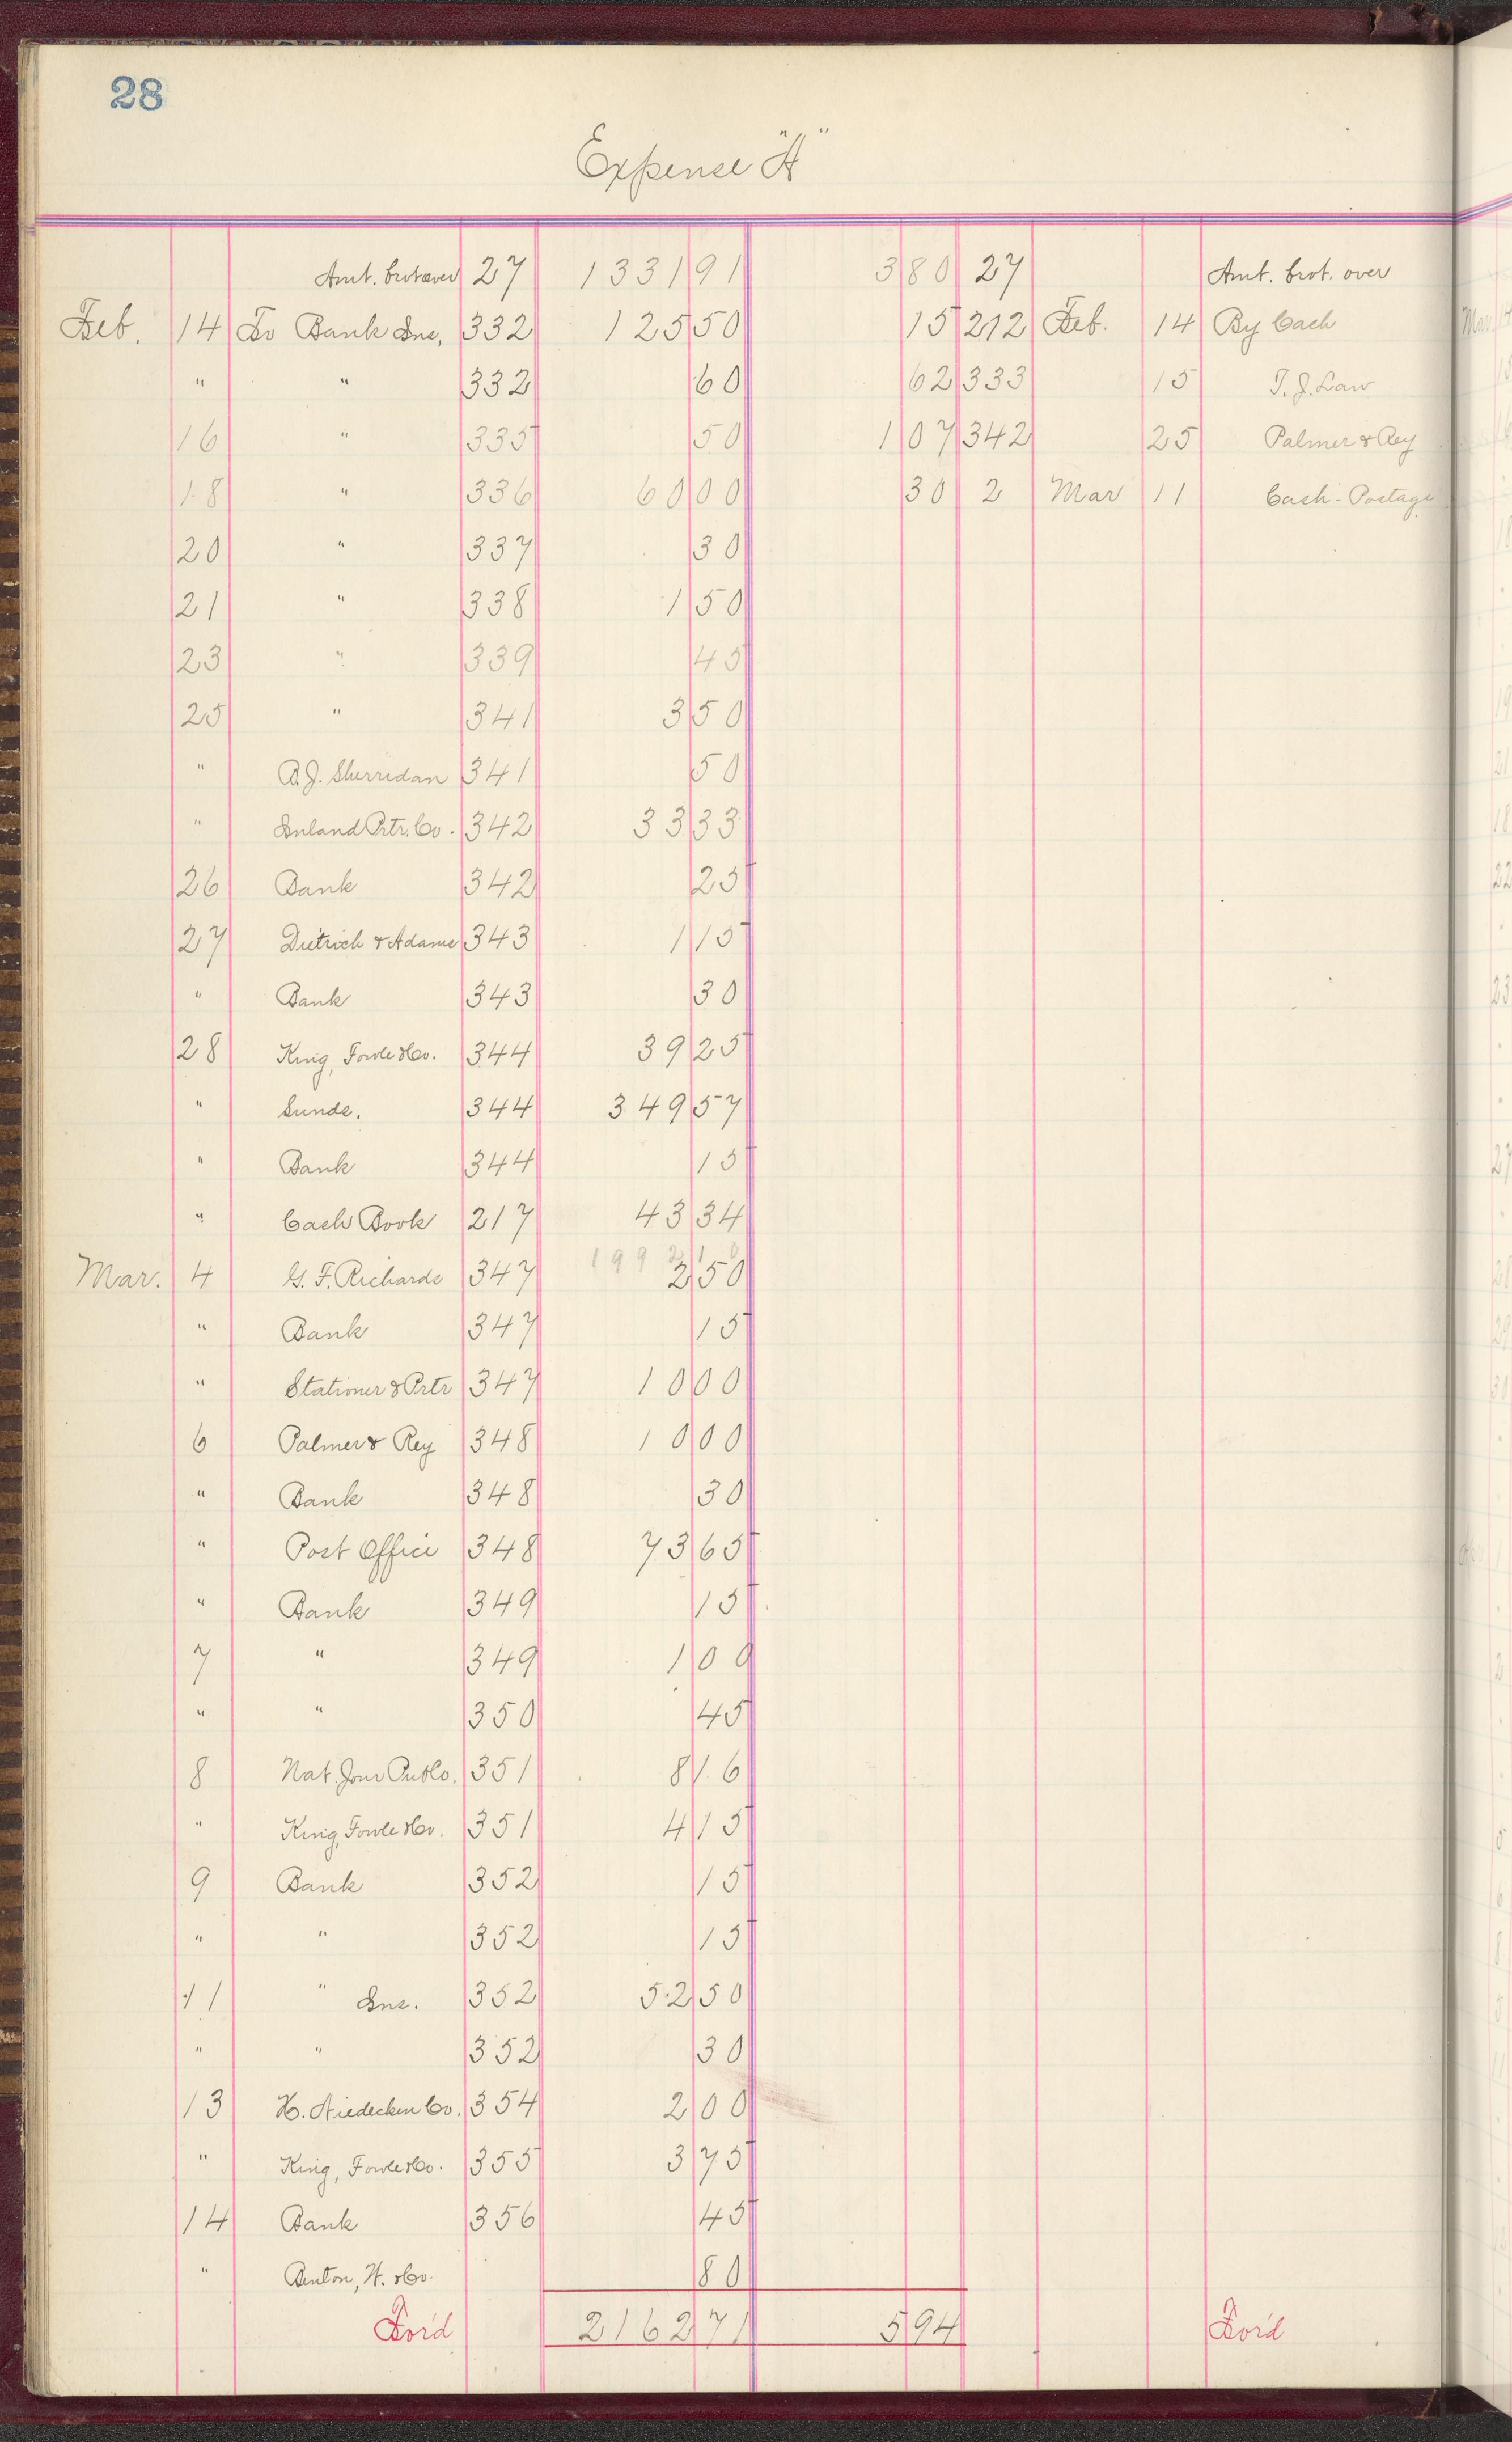 28
Expense "A"
Amt. brot over 27 1331 91 3 80 27 Amt. brot. over
Feb. 14 To Bank Ins, 332 125 50 15 212 Feb. 14 By Cash
" " 332 60 62 333 15 T. J. Law
16 " 335 50 1 07 342 25 Palmer & Rey
18 " 336 60 00 30 2 Mar 11 Cash - Postage
20 " 337 30
21 " 338 1 50
23 " 339 45
25 " 341 3 50
" A. J. Sherridan 341 50
" Inland Prtr. Co. 342 33 33
26 Bank 342 25
27 Dietrich & Adams 343 1 15
" Bank 343 30
28 King, Fowle & Co. 344 39 25
" Sunds. 344 349 57
" Bank 344 15
" Cash Book 217 43 34
199 2 1 0
Mar. 4 G. F. Richards 347 2 50
" Bank 347 15
" Stationer & Prtr 347 10 00
6 Palmer & Rey 348 10 00
" Bank 348 30
" Post Office 348 73 65
" Bank 349 15
7 " 349 1 00
" " 350 45
8 Nat. Jour Pub Co. 351 8 16
" King, Fowle & Co. 351 4 15
9 Bank 352 15
" " 352 15
11 " Ins. 352 52 50
" " 352 30
13 H. Niedecken Co. 354 2 00
" King, Fowle & Co. 355 3 75
14 Bank 356 45
" Benton, W. & Co. 80
For'd 2162 71 5 94 For'd